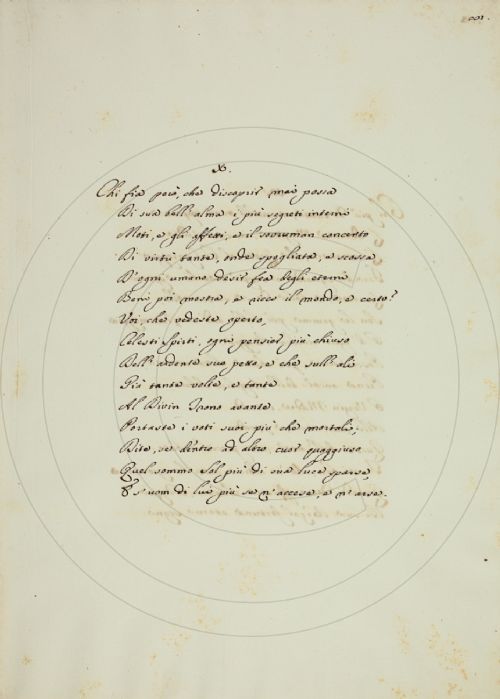 X.
Chi fia però, che discoprir mai possa
Di sua bell' alma i più segreti interni
Moti, e gli affetti, e il sovruman concerto
Di virtù tante, onde spogliata, e scossa
D' ogni umano desir fea degli eterni
Beni poi mostra, e ricco il mondo, e certo?
Voi, che vedeste aperto,
Celesti Spirti, ogni pensier più chiuso
Dell' ardente suo petto, e che sull' ali
Più tante volte, e tante
Al Divin Trono avante
Portaste i voti suoi più che mortali,
Dite, se dentro ad altro cuor quaggiuso
Quel sommo Sol più di sua luce sparse,
E s' uom di lui più se n' accese, e n' arse.